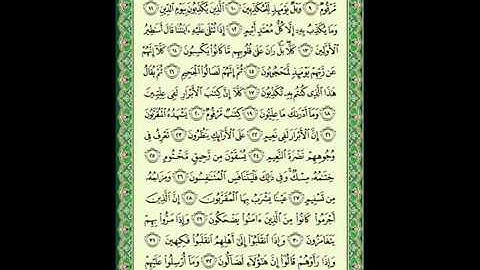 مَّرْقُومٌ ٩ وَيْلٌ يَوْمَئِذٍ لِّلْمُكَذِّبِينَ ١٠ الَّذِينَ يُكَذِّبُونَ بِيَوْمِ الدِّينِ ١١
وَمَا يُكَذِّبُ بِهِ إِلَّا كُلُّ مُعْتَدٍ أَثِيمٍ ١٢ إِذَا تُتْلَى عَلَيْهِ ءَايَاتُنَا قَالَ أَسَاطِيرُ
الْأَوَّلِينَ ١٣ كَلَّا بَلْ رَانَ عَلَى قُلُوبِهِم مَّا كَانُوا يَكْسِبُونَ ١٤ كَلَّا إِنَّهُمْ
عَن رَّبِّهِمْ يَوْمَئِذٍ لَّمَحْجُوبُونَ ١٥ ثُمَّ إِنَّهُمْ لَصَالُوا الْجَحِيمِ ١٦ ثُمَّ يُقَالُ
هَذَا الَّذِي كُنتُم بِهِ تُكَذِّبُونَ ١٧ كَلَّا إِنَّ كِتَابَ الْأَبْرَارِ لَفِي عِلِّيِّينَ
١٨ وَمَا أَدْرَاكَ مَا عِلِّيُّونَ ١٩ كِتَابٌ مَّرْقُومٌ ٢٠ يَشْهَدُهُ الْمُقَرَّبُونَ
٢١ إِنَّ الْأَبْرَارَ لَفِي نَعِيمٍ ٢٢ عَلَى الْأَرَائِكِ يَنظُرُونَ ٢٣ تَعْرِفُ فِي
وُجُوهِهِمْ نَضْرَةَ النَّعِيمِ ٢٤ يُسْقَوْنَ مِن رَّحِيقٍ مَّخْتُومٍ ٢٥
خِتَامُهُ مِسْكٌ وَفِي ذَلِكَ فَلْيَتَنَافَسِ الْمُتَنَافِسُونَ ٢٦ وَمِزَاجُهُ
مِن تَسْنِيمٍ ٢٧ عَيْنًا يَشْرَبُ بِهَا الْمُقَرَّبُونَ ٢٨ إِنَّ الَّذِينَ
أَجْرَمُوا كَانُوا مِنَ الَّذِينَ ءَامَنُوا يَضْحَكُونَ ٢٩ وَإِذَا مَرُّوا بِهِمْ
يَتَغَامَزُونَ ٣٠ وَإِذَا انقَلَبُوا إِلَى أَهْلِهِمُ انقَلَبُوا فَكِهِينَ ٣١
وَإِذَا رَأَوْهُمْ قَالُوا إِنَّ هَؤُلَاءِ لَضَالُّونَ ٣٢ وَمَا أُرْسِلُوا عَلَيْهِمْ